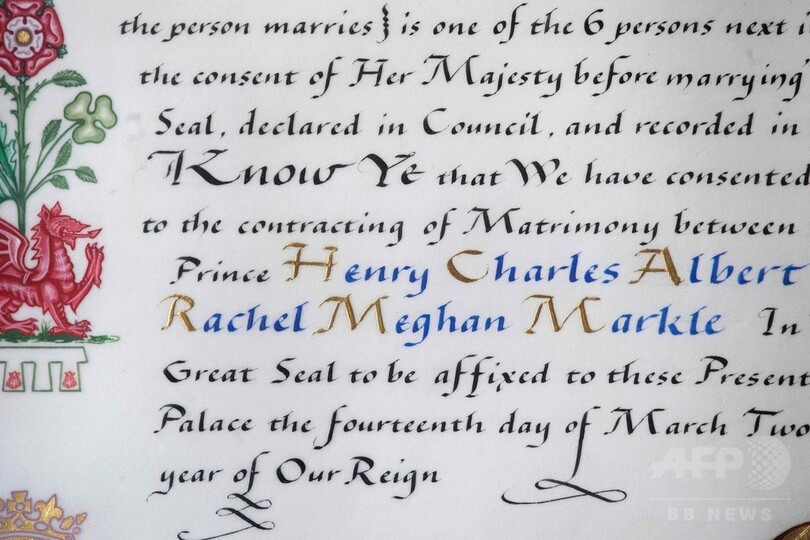 the person marries) is one of the 6 persons next i
the consent of Her Majesty before marrying
Seal, declared in Council, and recorded in
Know Ye that We have consented
to the contracting of Matrimony between
Prince Henry Charles Albert
Rachel Meghan Markle In
Great Seal to be affixed to these Present
Palace the fourteenth day of March Two
year of Our Reign
AFP
BB NEWS